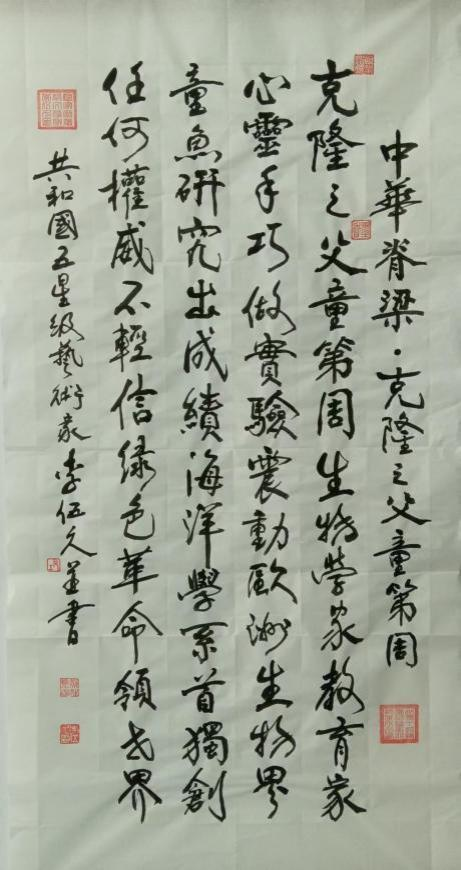 中華脊梁·克隆之父童第周
克隆之父童第周生物學家教育家
心靈手巧做實驗震動歐洲生物界
童魚研究出成績海洋學系首獨創
任何權威不輕信綠色革命領世界
共和國五星級藝術家李伍久並書